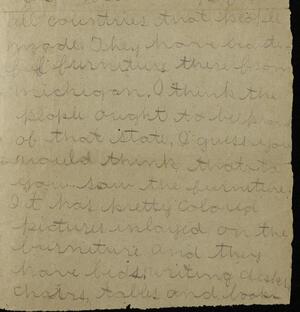 all countries that people
made. They have beaute-
ful furniture there from
michigan. I think the
plople ought to be proud
of that state, I guess you
would think that to
you saw the furniture
It has pretty colored
pictures inlayed on the
burniture and they
have beds, writing desks,
chairs, tables and book